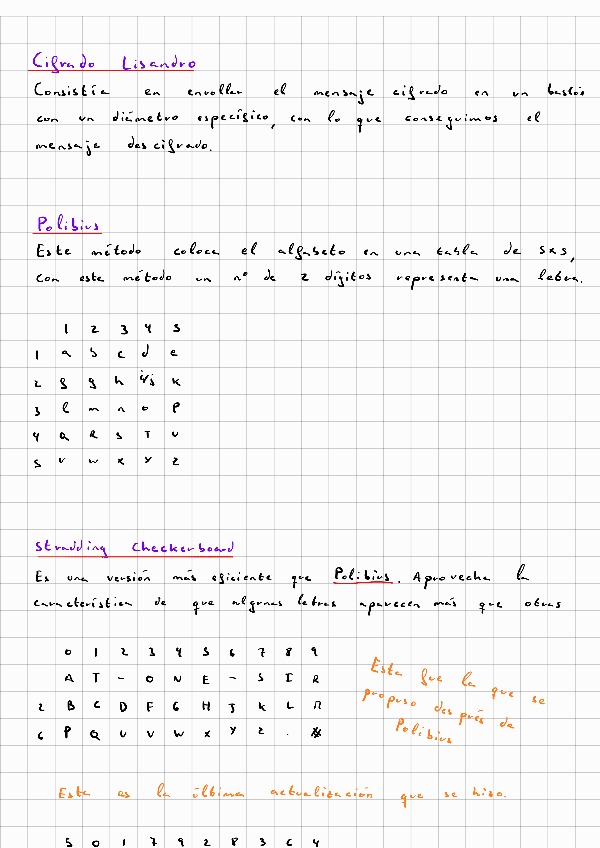 Cifrado Lisandro
Consistía en enrollar el mensaje cifrado en un bastón
con un diámetro específico, con lo que conseguimos el
mensaje descifrado.
Polibius
Este método coloca el alfabeto en una tabla de 5x5,
con este método un nº de 2 dígitos representa una letra.
1 2 3 4 5
1 a b c d e
2 f g h i/j k
3 l m n o P
4 Q R S T U
5 V W X Y Z
Stradding Checkerboard
Es una versión más eficiente que Polibius. Aprovecha la
característica de que algunas letras aparecen más que otras
0 1 2 3 4 5 6 7 8 9
A T - O N E - S I R
2 B C D F G H J K L M
6 P Q U V W X Y Z .
Esta fue la que se
propuso después de
Polibius
Esta es la última actualización que se hizo.
5 0 1 7 9 2 8 3 6 4